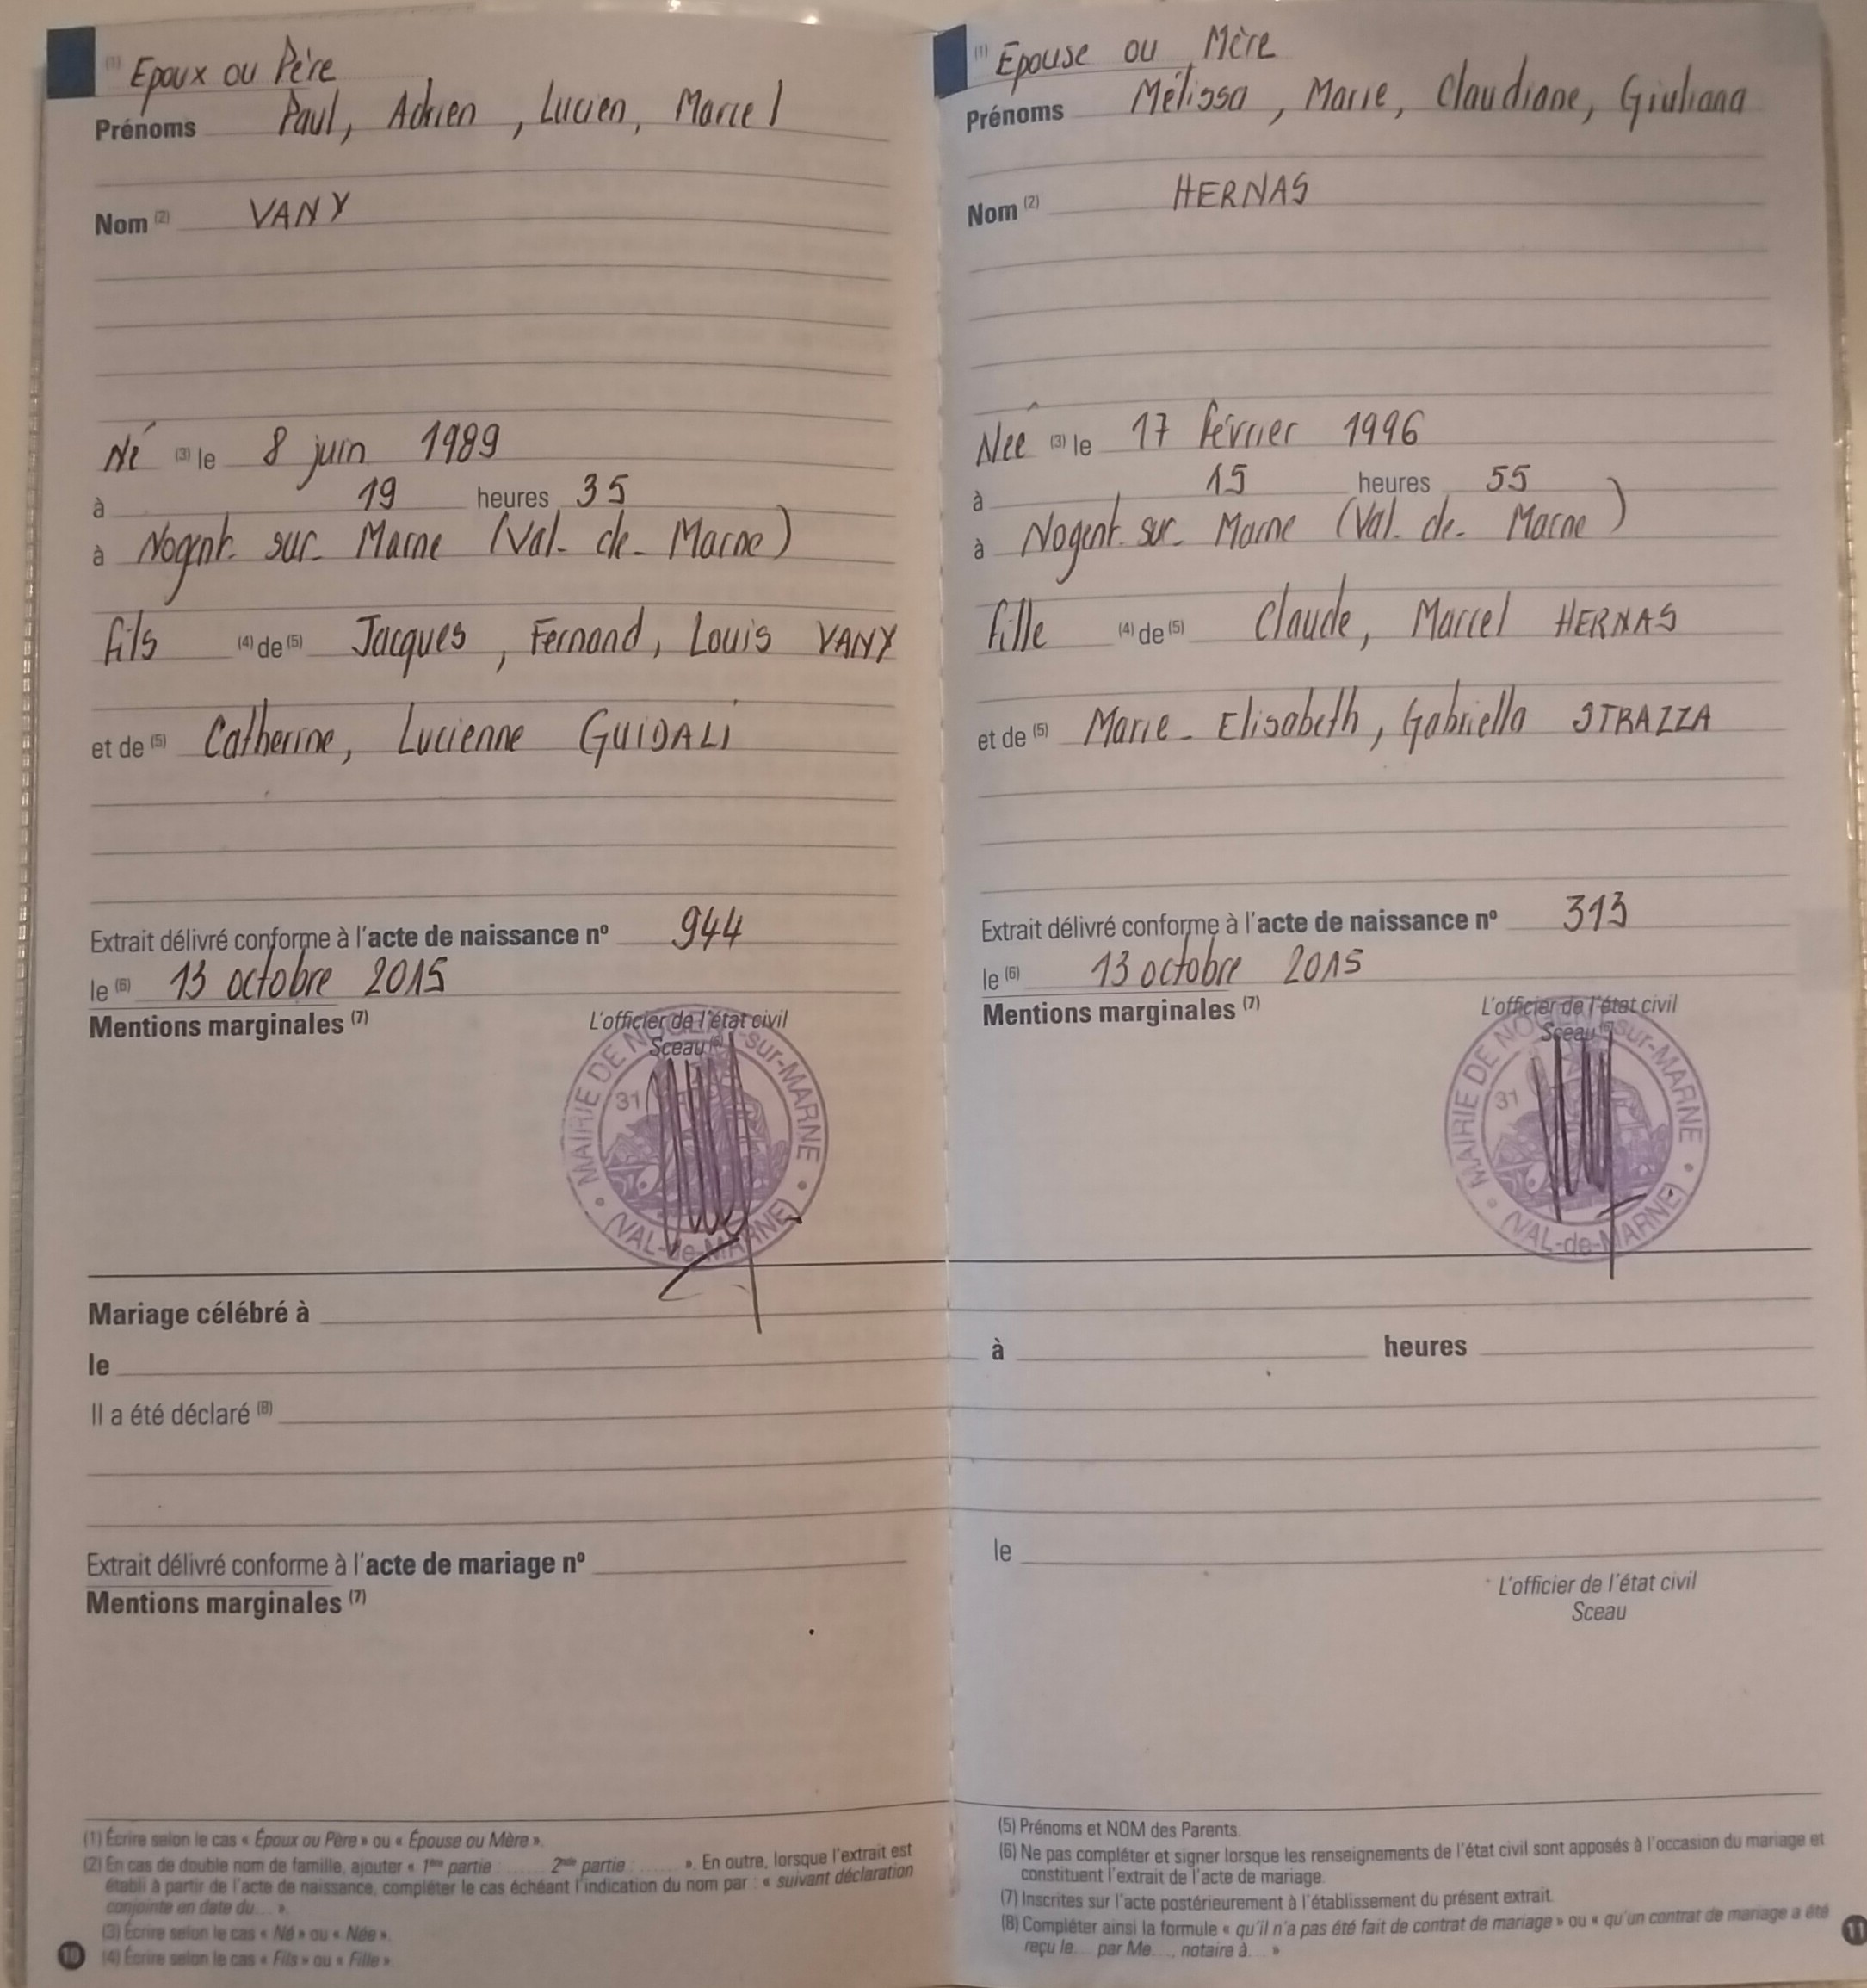 (1) Epoux ou Père
Prénoms Paul, Adrien, Lucien, Marcel
Nom (2) VANY
Né (3) le 8 juin 1989
à 19 heures 35
à Nogent-sur-Marne (Val-de-Marne)
fils (4) de (5) Jacques, Fernand, Louis VANY
et de (5) Catherine, Lucienne GUIDALI
Extrait délivré conforme à l'acte de naissance nº 944
le (6) 13 octobre 2015
Mentions marginales (7)
L'officier de l'état civil
Sceau (6)
MAIRIE DE NOGENT-sur-MARNE
31
(VAL-de-MARNE)
(1) Epouse ou Mère
Prénoms Mélissa, Marie, Claudiane, Giuliana
Nom (2) HERNAS
Née (3) le 17 février 1996
à 15 heures 55
à Nogent-sur-Marne (Val-de-Marne)
fille (4) de (5) Claude, Marcel HERNAS
et de (5) Marie-Elisabeth, Gabriella STRAZZA
Extrait délivré conforme à l'acte de naissance nº 313
le (6) 13 octobre 2015
Mentions marginales (7)
L'officier de l'état civil
Sceau (6)
MAIRIE DE NOGENT-sur-MARNE
31
(VAL-de-MARNE)
Mariage célébré à
le à heures
Il a été déclaré (8)
Extrait délivré conforme à l'acte de mariage nº le
Mentions marginales (7)
L'officier de l'état civil
Sceau
(1) Écrire selon le cas « Époux ou Père » ou « Épouse ou Mère ».
(2) En cas de double nom de famille, ajouter « 1ère partie : ...... 2nde partie : ...... ». En outre, lorsque l'extrait est
établi à partir de l'acte de naissance, compléter le cas échéant l'indication du nom par : « suivant déclaration
conjointe en date du... ».
(3) Écrire selon le cas « Né » ou « Née ».
(4) Écrire selon le cas « Fils » ou « Fille ».
10
(5) Prénoms et NOM des Parents.
(6) Ne pas compléter et signer lorsque les renseignements de l'état civil sont apposés à l'occasion du mariage et
constituent l'extrait de l'acte de mariage.
(7) Inscrites sur l'acte postérieurement à l'établissement du présent extrait.
(8) Compléter ainsi la formule « qu'il n'a pas été fait de contrat de mariage » ou « qu'un contrat de mariage a été
reçu le... par Me..., notaire à... »
11